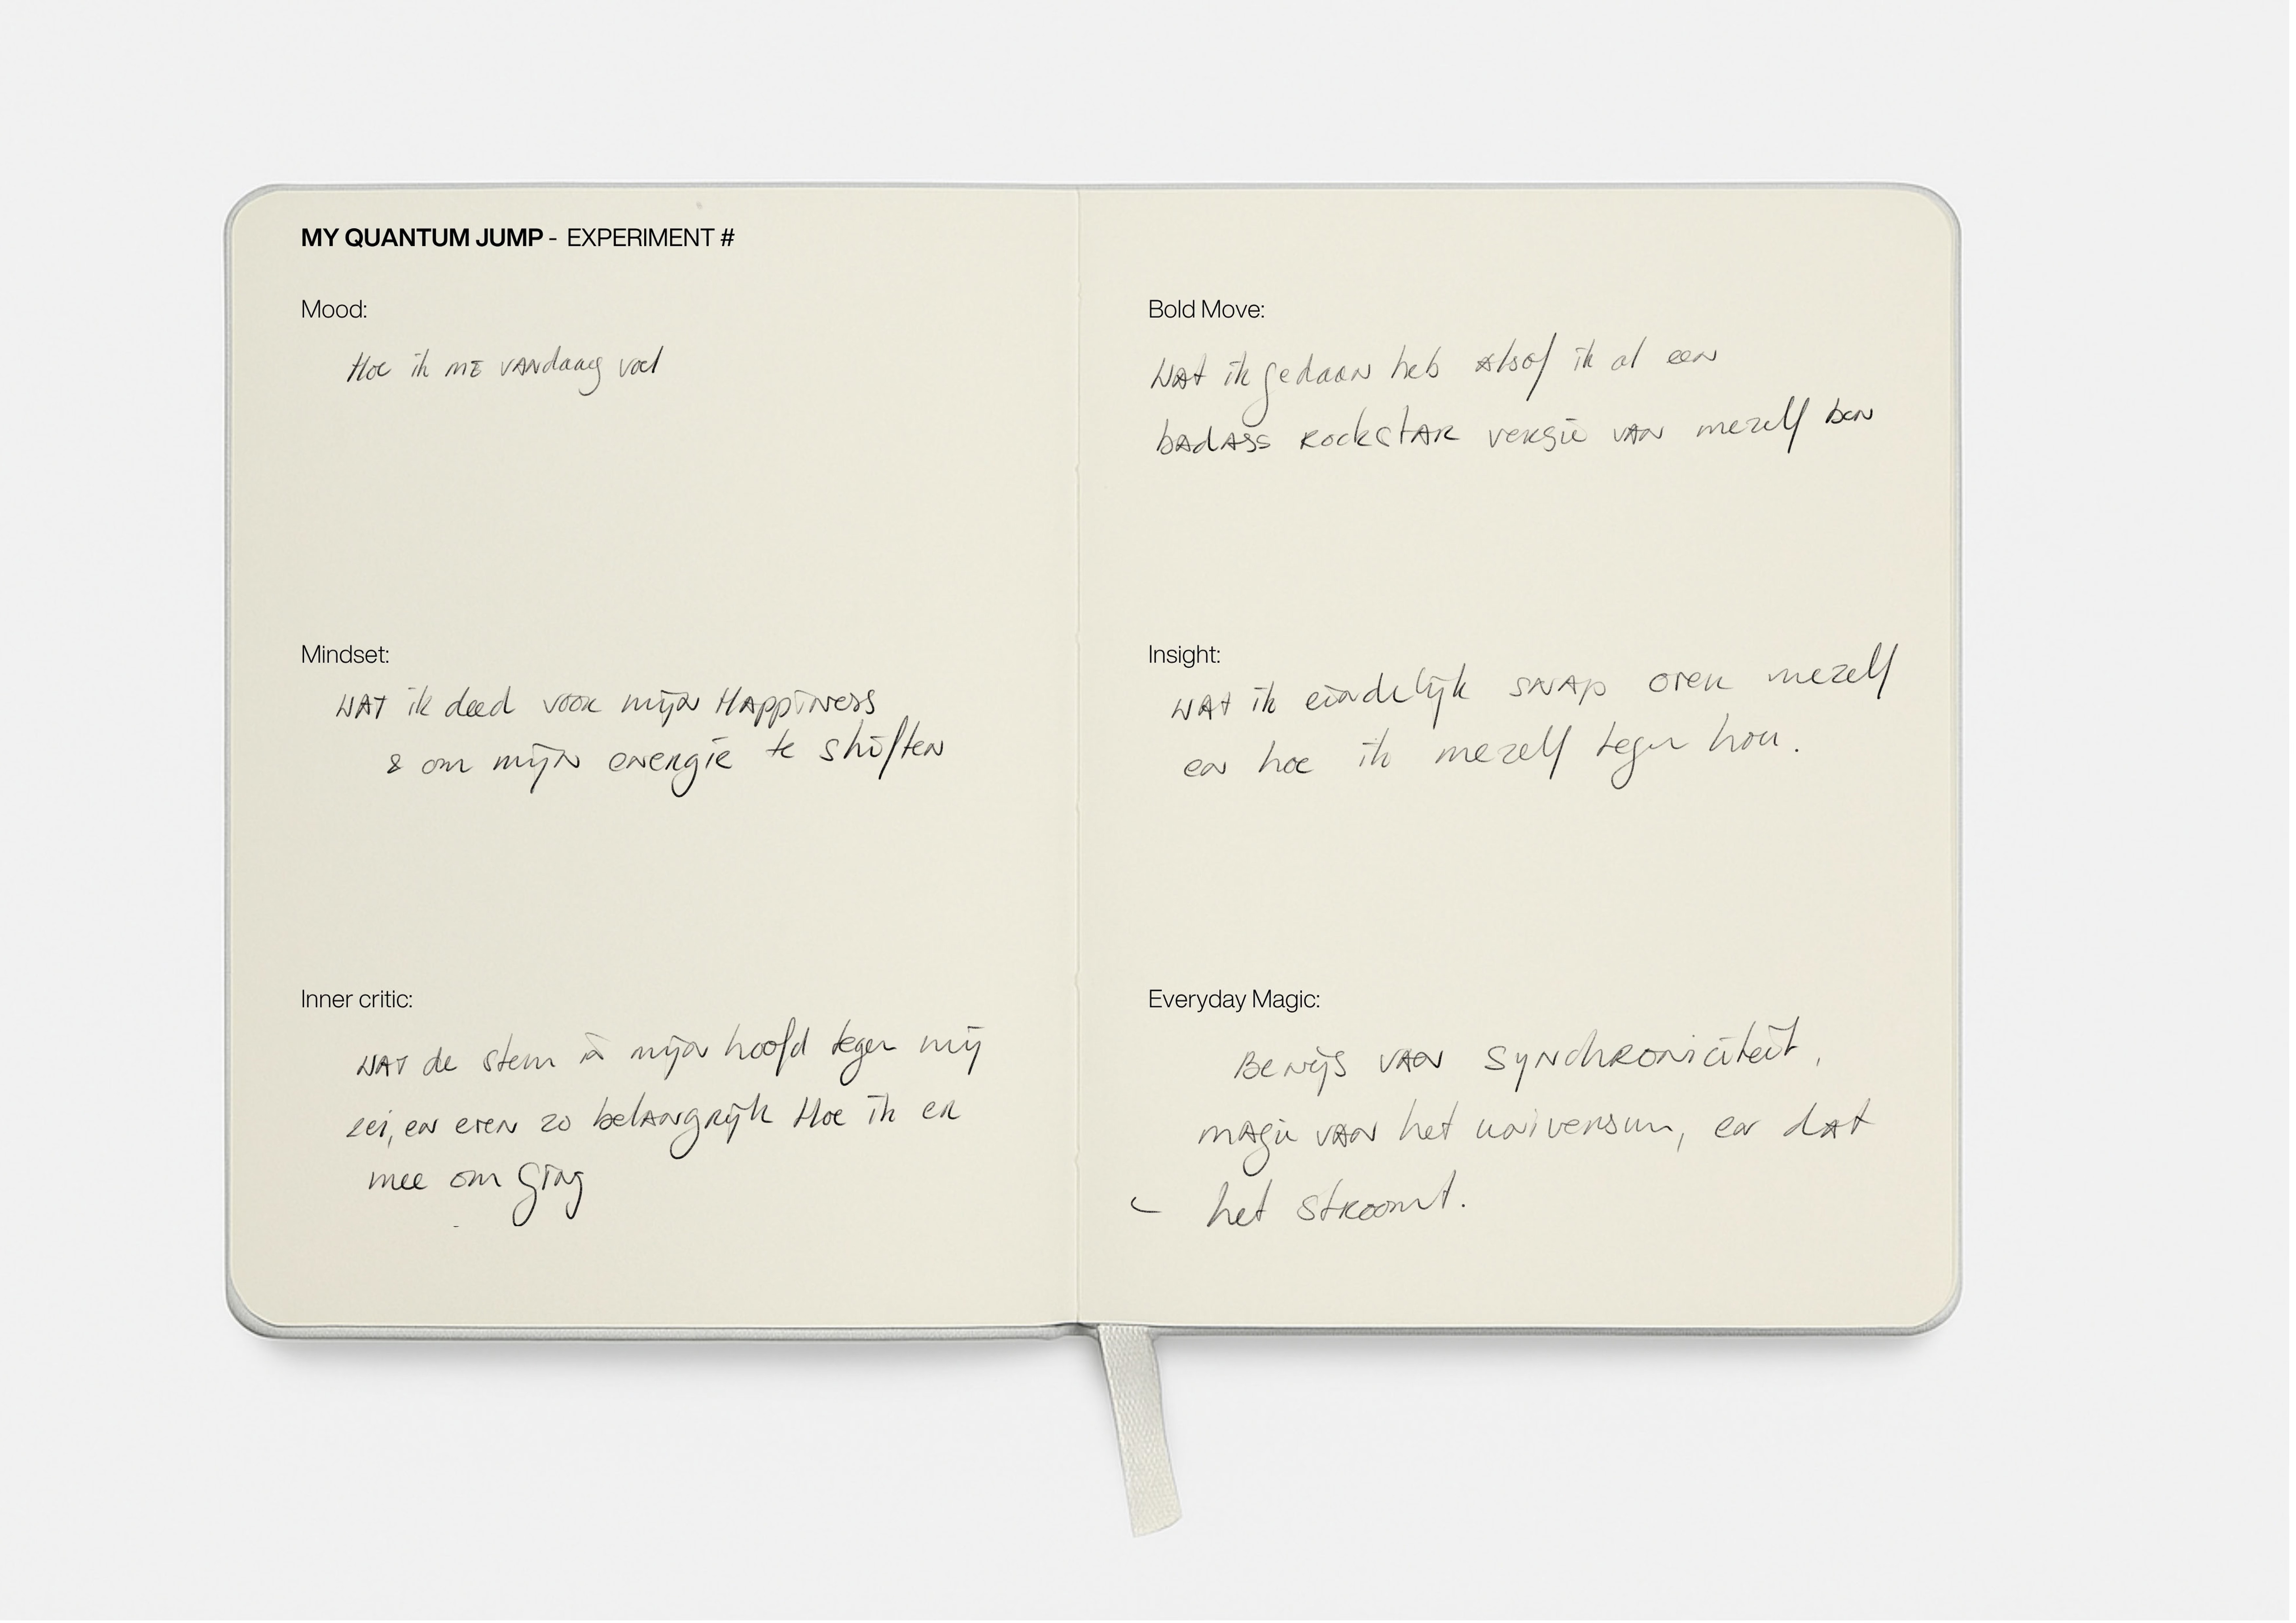 MY QUANTUM JUMP - EXPERIMENT #
Mood:
Hoe ik me vandaag voel
Mindset:
Wat ik deed voor mijn Happiness
& om mijn energie te shiften
Inner critic:
Wat de stem in mijn hoofd tegen mij
zei, en even zo belangrijk Hoe ik er
mee om ging
Bold Move:
Wat ik gedaan heb alsof ik al een
badass rockstar versie van mezelf ben
Insight:
Wat ik eindelijk snap over mezelf
en hoe ik mezelf tegen hou.
Everyday Magic:
Bewijs van synchroniciteit,
magie van het universum, en dat
het stroomt.